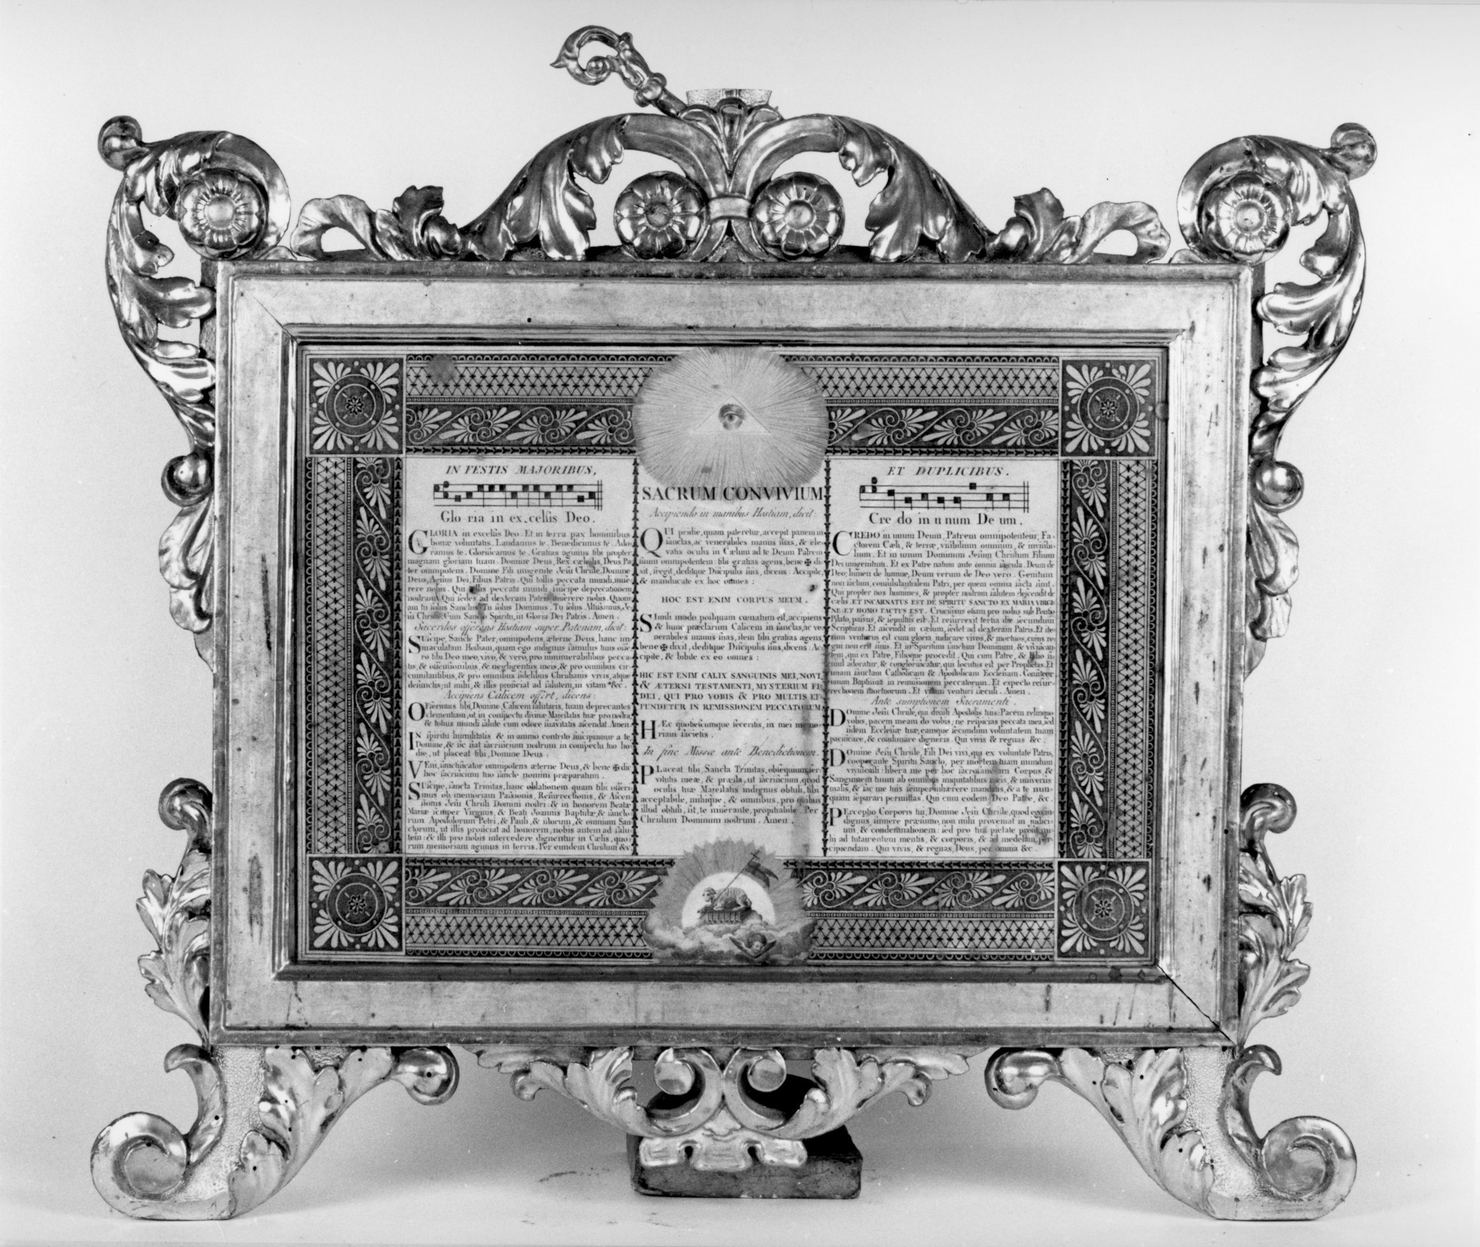 IN FESTIS MAJORIBUS,
Glo ria in ex.celsis Deo.
GLORIA in excelsis Deo. Et in terra pax hominibus
bonæ voluntatis. Laudamus te. Benedicimus te. Ado
ramus te. Glorificamus te. Gratias agimus tibi propter
magnam gloriam tuam. Domine Deus, Rex cælestis, Deus Pa
ter omnipotens. Domine Fili unigenite Jesu Christe. Domine
Deus, Agnus Dei, Filius Patris. Qui tollis peccata mundi, mise
rere nobis. Qui tollis peccata mundi, suscipe deprecationem
nostram. Qui sedes ad dexteram Patris, miserere nobis. Quoni
am tu solus Sanctus. Tu solus Dominus. Tu solus Altissimus, Je
su Christe. Cum Sancto Spiritu, in Gloria Dei Patris. Amen.
Sacerdos offerens Hostiam super Patenam, dicit:
Suscipe, Sancte Pater, omnipotens, æterne Deus, hanc im
maculatam Hostiam, quam ego indignus famulus tuus offe
ro tibi Deo meo, vivo, & vero, pro innumerabilibus pecca
tis, & offensionibus, & negligentiis meis, & pro omnibus cir
cumstantibus, & pro omnibus fidelibus Christianis vivis, atque
defunctis; ut mihi, & illis proficiat ad salutem, in vitam &c.
Accipiens Calicem offert, dicens:
Offerimus tibi, Domine, Calicem salutaris, tuam deprecantes
clementiam, ut in conspectu divinæ Majestatis tuæ pro nostra,
& totius mundi salute cum odore suavitatis ascendat. Amen.
In spiritu humilitatis & in animo contrito suscipiamur a te,
Domine, & sic fiat sacrificium nostrum in conspectu tuo ho
die, ut placeat tibi, Domine Deus.
Veni, sanctificator omnipotens æterne Deus, & bene ✠ dic
hoc sacrificium tuo sancto nomini præparatum.
Suscipe, sancta Trinitas, hanc oblationem quam tibi offeri
mus ob memoriam Passionis, Resurrectionis, & Ascen
sionis Jesu Christi Domini nostri: & in honorem Beatæ
Mariæ semper Virginis, & Beati Joannis Baptistæ, & sancto
rum Apostolorum Petri, & Pauli, & istorum, & omnium San
ctorum, ut illis proficiat ad honorem, nobis autem ad salu
tem: & illi pro nobis intercedere dignentur in Cælis, quo
rum memoriam agimus in terris. Per eundem Christum &c
SACRUM CONVIVIUM
Accipiendo in manibus Hostiam, dicit:
Qui pridie, quam pateretur, accepit panem in
sanctas, ac venerabiles manus suas, & ele
vatis oculis in Cælum ad te Deum Patrem
suum omnipotentem: tibi gratias agens, bene ✠ di
xit, fregit, deditque Discipulis suis, dicens: Accipite,
& manducate ex hoc omnes:
HOC EST ENIM CORPUS MEUM.
Simili modo postquam cœnatum est, accipiens
& hunc præclarum Calicem in sanctas, ac ve
nerabiles manus suas, item tibi gratias agens,
bene ✠ dixit, deditque Discipulis suis, dicens: Ac
cipite, & bibite ex eo omnes:
HIC EST ENIM CALIX SANGUINIS MEI, NOVI,
& ÆTERNI TESTAMENTI, MYSTERIUM FI
DEI, QUI PRO VOBIS & PRO MULTIS EF
FUNDETUR IN REMISSIONEM PECCATORUM.
Hæc quotiescumque feceritis, in mei memo
riam facietis.
In fine Missæ ante Benedictionem.
Placeat tibi, Sancta Trinitas, obsequium ser
vitutis meæ, & præsta, ut sacrificium, quod
oculis tuæ Majestatis indignus obtuli, tibi
acceptabile, mihique, & omnibus, pro quibus
illud obtuli, sit, te miserante, propitiabile. Per
Christum Dominum nostrum. Amen.
ET DUPLICIBUS.
Cre do in u num De um.
CREDO in unum Deum, Patrem omnipotentem, Fa
ctorem Cæli, & terræ, visibilium omnium, & invisibi
lium. Et in unum Dominum Jesum Christum Filium
Dei unigenitum. Et ex Patre natum ante omnia sæcula. Deum de
Deo, lumen de lumine, Deum verum de Deo vero. Genitum
non factum, consubstantialem Patri, per quem omnia facta sunt.
Qui propter nos homines, & propter nostram salutem descendit de
cælis. ET INCARNATUS EST DE SPIRITU SANCTO EX MARIA VIRGI
NE: ET HOMO FACTUS EST. Crucifixus etiam pro nobis sub Pontio
Pilato, passus, & sepultus est. Et resurrexit tertia die secundum
Scripturas. Et ascendit in cælum, sedet ad dexteram Patris. Et ite
rum venturus est cum gloria, judicare vivos, & mortuos, cujus re
gni non erit finis. Et in Spiritum sanctum Dominum, & vivifican
tem, qui ex Patre, Filioque procedit. Qui cum Patre, & Filio si
mul adoratur, & conglorificatur, qui locutus est per Prophetas. Et
unam sanctam Catholicam & Apostolicam Ecclesiam. Confiteor
unum Baptisma in remissionem peccatorum. Et expecto resur
rectionem mortuorum. Et vitam venturi sæculi. Amen.
Ante sumptionem Sacramenti.
Domine Jesu Christe, qui dixisti Apostolis tuis: Pacem relinquo
vobis, pacem meam do vobis, ne respicias peccata mea, sed
fidem Ecclesiæ tuæ, eamque secundum voluntatem tuam
pacificare, & coadunare digneris. Qui vivis & regnas &c.
Domine Jesu Christe, Fili Dei vivi, qui ex voluntate Patris,
cooperante Spiritu Sancto, per mortem tuam mundum
vivificasti: libera me per hoc sacrosanctum Corpus &
Sanguinem tuum ab omnibus iniquitatibus meis, & universis
malis, & fac me tuis semper inhærere mandatis, & a te num
quam separari permittas. Qui cum eodem Deo Patre, &c.
Perceptio Corporis tui, Domine Jesu Christe, quod ego in
dignus sumere præsumo, non mihi proveniat in judici
um, & condemnationem: sed pro tua pietate prosit mi
hi ad tutamentum mentis, & corporis, & ad medelam per
cipiendam. Qui vivis, & regnas, Deus, per omnia &c.